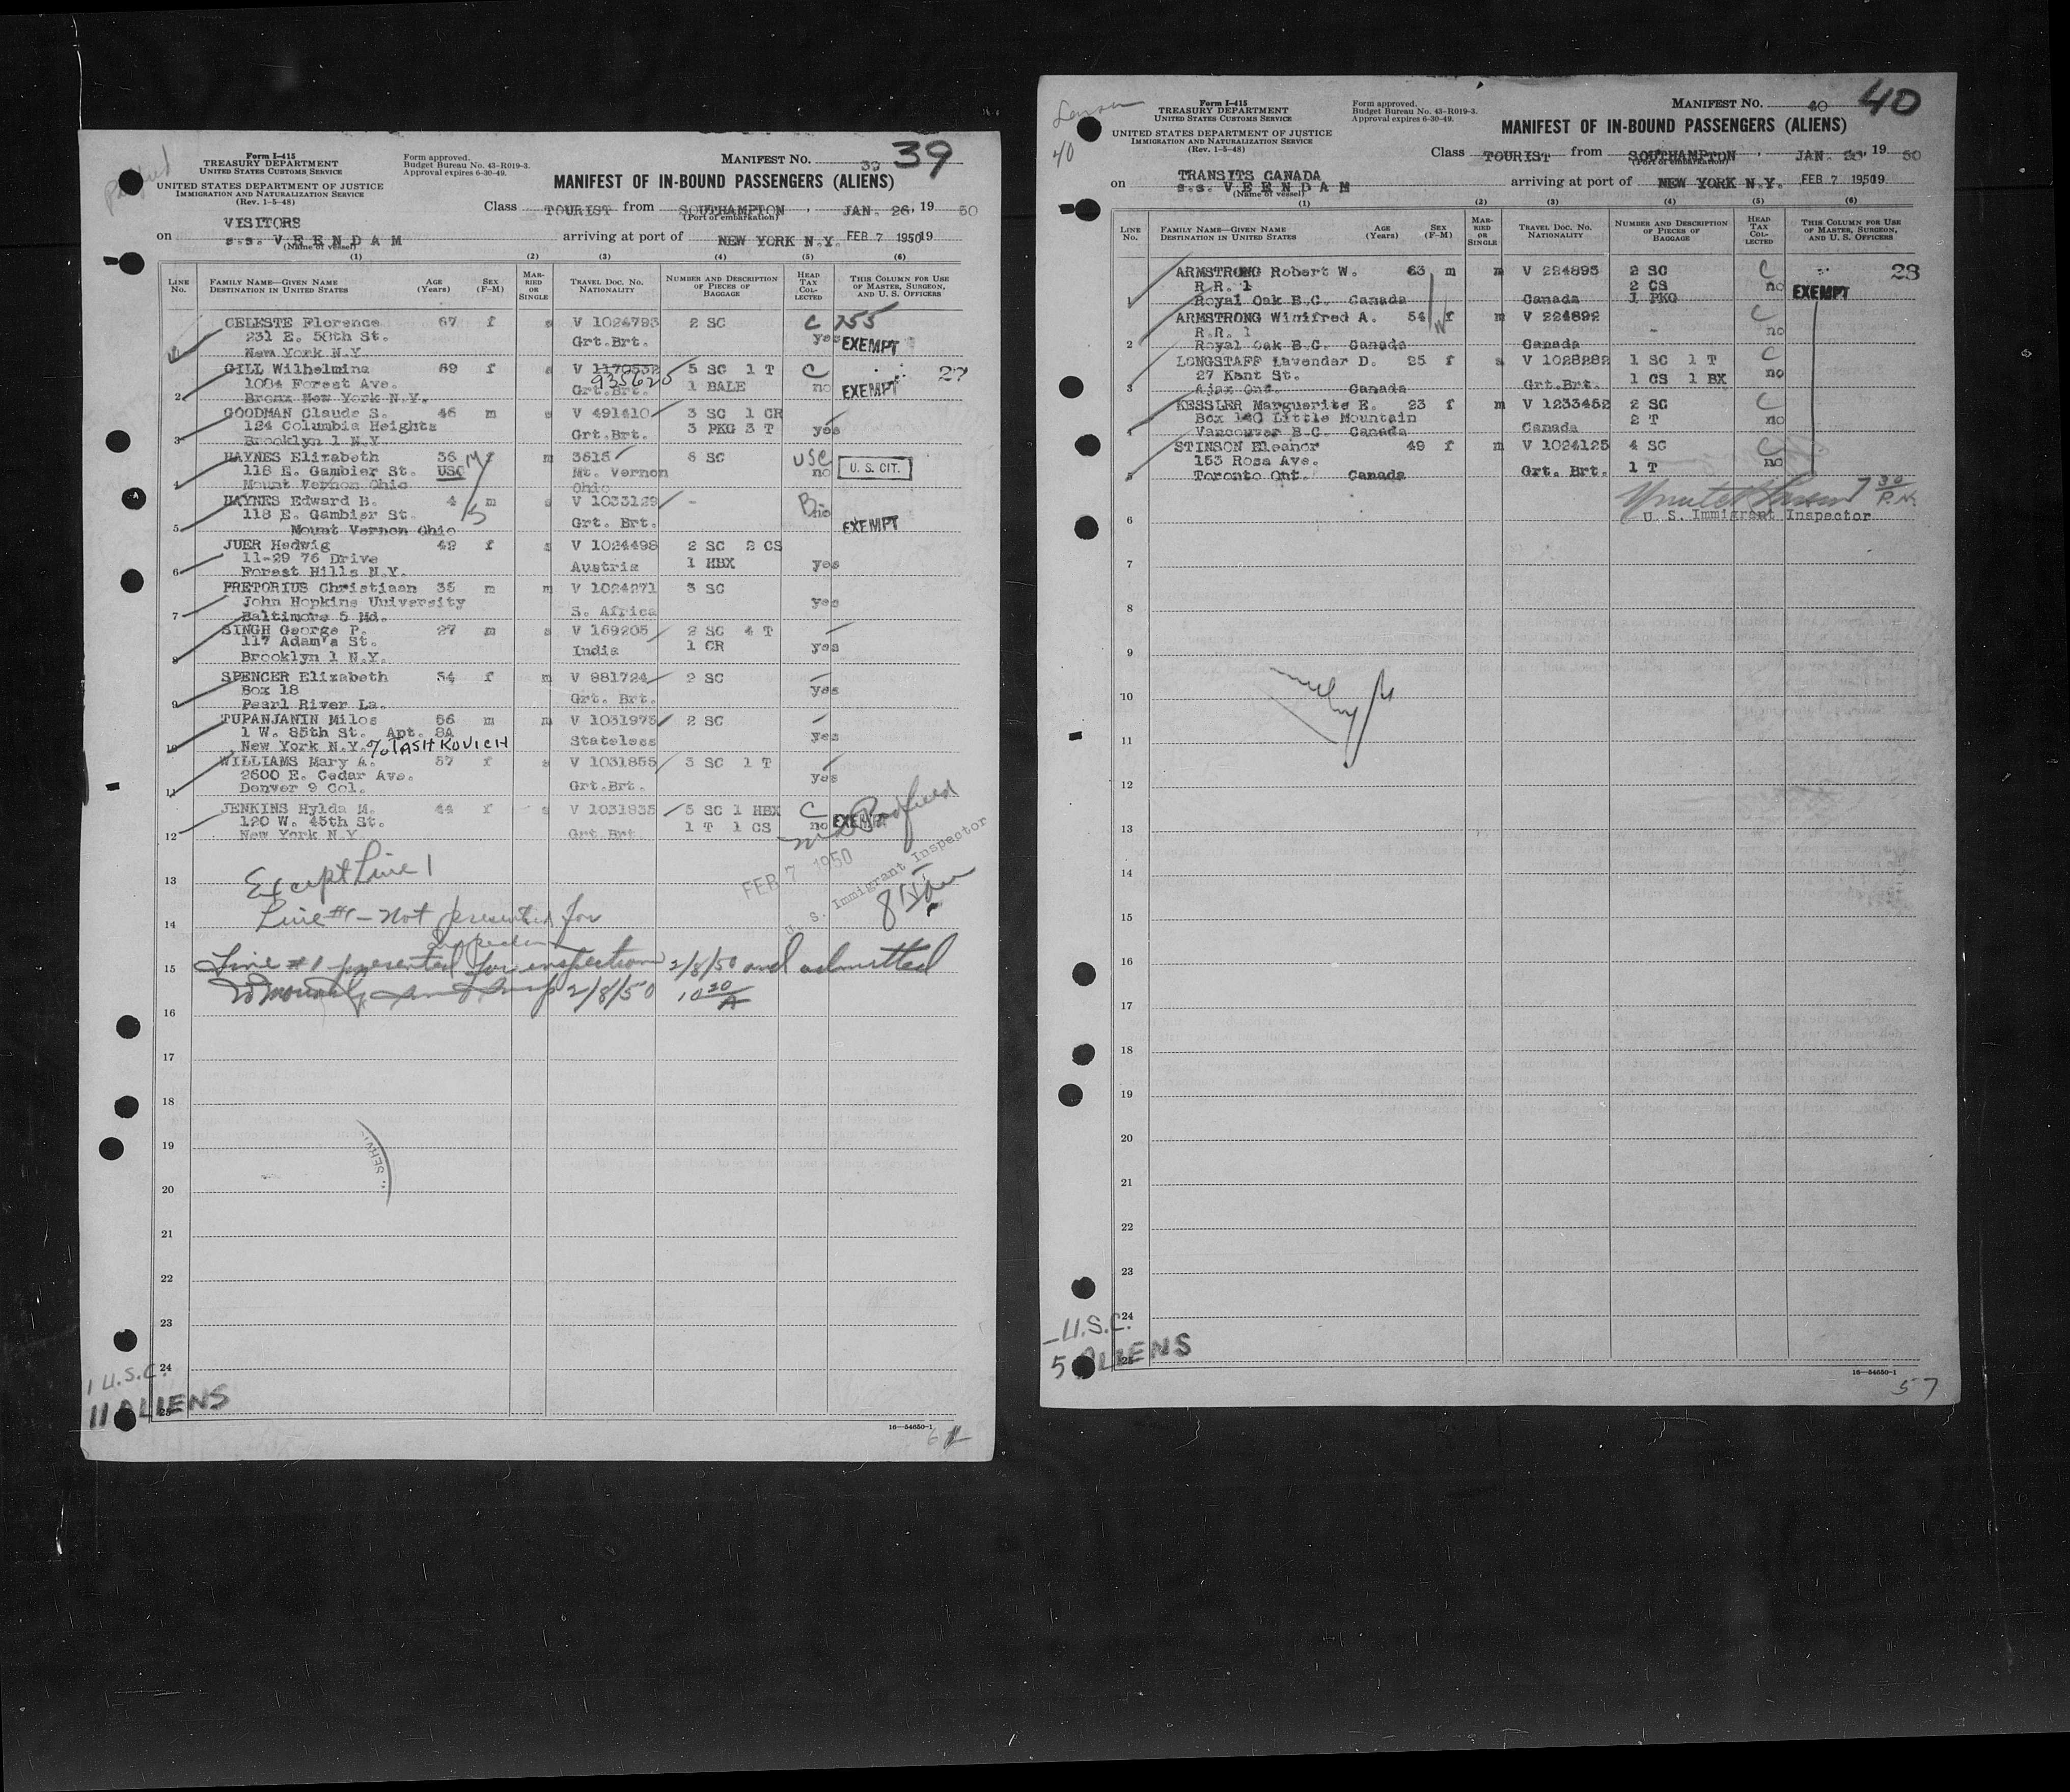 Form I-415
TREASURY DEPARTMENT
UNITED STATES CUSTOMS SERVICE
UNITED STATES DEPARTMENT OF JUSTICE
IMMIGRATION AND NATURALIZATION SERVICE
(Rev. 1-5-48)
Form approved.
Budget Bureau No. 43-R019-3.
Approval expires 6-30-49.
MANIFEST NO. 39 39
MANIFEST OF IN-BOUND PASSENGERS (ALIENS)
Class TOURIST from SOUTHAMPTON, JAN. 26, 1950
(Port of embarkation)
VISITORS
on s.s. VEENDAM arriving at port of NEW YORK N.Y. FEB 7 1950 19
(Name of vessel)
(1) (2) (3) (4) (5) (6)
LINE No. FAMILY NAME—GIVEN NAME DESTINATION IN UNITED STATES AGE (Years) SEX (F-M) MARRIED OR SINGLE TRAVEL DOC. NO. NATIONALITY NUMBER AND DESCRIPTION OF PIECES OF BAGGAGE HEAD TAX COLLECTED THIS COLUMN FOR USE OF MASTER, SURGEON, AND U. S. OFFICERS
CELESTE Florence 67 f s V 1024793 2 SC C 755
231 E. 58th St. Grt.Brt. yes EXEMPT
New York N.Y.
GILL Wilhelmina 69 f s V 1170532 5 SC 1 T C 27
1084 Forest Ave. 935625 Grt.Brt. 1 BALE no EXEMPT
2 Bronx New York N.Y.
GOODMAN Claude S. 46 m s V 491410 3 SC 1 CR
124 Columbia Heights Grt.Brt. 3 PKG 3 T yes
3 Brooklyn 1 N.Y.
HAYNES Elizabeth 36 f m 3615 5 SC USC
118 E. Gambier St. USC Mt. Vernon no U. S. CIT.
4 Mount Vernon Ohio Ohio
HAYNES Edward B. 4 m s V 1033129 -
118 E. Gambier St. Grt. Brt. no EXEMPT
5 Mount Vernon Ohio
JUER Hedwig 49 f s V 1024498 2 SC 2 CS
11-29 76 Drive Austria 1 HBX yes
6 Forest Hills N.Y.
PRETORIUS Christiaan 35 m m V 1024271 3 SC
John Hopkins University S. Africa yes
7 Baltimore 5 Md.
SINGH George P. 27 m s V 169205 2 SC 4 T
117 Adam's St. India 1 CR yes
8 Brooklyn 1 N.Y.
SPENCER Elizabeth 34 f m V 981724 2 SC
Box 18 Grt. Brt. yes
9 Pearl River La.
TUPANJANIN Milos 56 m m V 1031975 2 SC
1 W. 85th St. Apt. 8A Stateless yes
10 New York N.Y. % TASHKOVICH
WILLIAMS Mary A. 57 f s V 1031855 3 SC 1 T
2600 E. Cedar Ave. Grt.Brt. yes
11 Denver 9 Col.
JENKINS Hylda M. 44 f s V 1031935 5 SC 1 HBX C
120 W. 45th St. Grt.Brt 1 T 1 CS no EXEMPT
12 New York N.Y.
FEB 7 1950
U. S. Immigrant Inspector
13 Except Line 1
14 Line #1 - Not presented for
Inspection
15 Line #1 presented for inspection 2/8/50 and admitted
2/8/50 10 30 A
16
17
18
19
20
21
22
23
24
25
1 U.S.C.
11 ALIENS
16—54650-1
Form I-415
TREASURY DEPARTMENT
UNITED STATES CUSTOMS SERVICE
UNITED STATES DEPARTMENT OF JUSTICE
IMMIGRATION AND NATURALIZATION SERVICE
(Rev. 1-5-48)
40
Form approved.
Budget Bureau No. 43-R019-3.
Approval expires 6-30-49.
MANIFEST NO. 40 40
MANIFEST OF IN-BOUND PASSENGERS (ALIENS)
Class TOURIST from SOUTHAMPTON, JAN. 26, 1950
(Port of embarkation)
TRANSITS CANADA
on s.s. VEENDAM arriving at port of NEW YORK N.Y. FEB 7 1950 19
(Name of vessel)
(1) (2) (3) (4) (5) (6)
LINE No. FAMILY NAME—GIVEN NAME DESTINATION IN UNITED STATES AGE (Years) SEX (F-M) MARRIED OR SINGLE TRAVEL DOC. NO. NATIONALITY NUMBER AND DESCRIPTION OF PIECES OF BAGGAGE HEAD TAX COLLECTED THIS COLUMN FOR USE OF MASTER, SURGEON, AND U. S. OFFICERS
ARMSTRONG Robert W. 63 m m V 224893 2 SC C 28
R.R. 1 2 CS no EXEMPT
1 Royal Oak B.C. Canada Canada 1 PKG
ARMSTRONG Winifred A. 54 f m V 224892 C
R.R. 1 - no
2 Royal Oak B.C. Canada Canada
LONGSTAFF Lavendar D. 25 f s V 1028282 1 SC 1 T C
27 Kant St. 1 CS 1 BX no
3 Ajax Ont. Canada Grt.Brt.
KESSLER Marguerite E. 23 f m V 1233452 2 SC C
Box 140 Little Mountain 2 T no
4 Vancouver B.C. Canada Canada
STINSON Eleanor 49 f m V 1024125 4 SC C
153 Rosa Ave. 1 T no
5 Toronto Ont. Canada Grt. Brt.
7 30 P.M.
6 U. S. Immigrant Inspector
7
8
9
10
11
12
13
14
15
16
17
18
19
20
21
22
23
24
25
- U.S.C.
5 ALIENS
16—54650-1
57